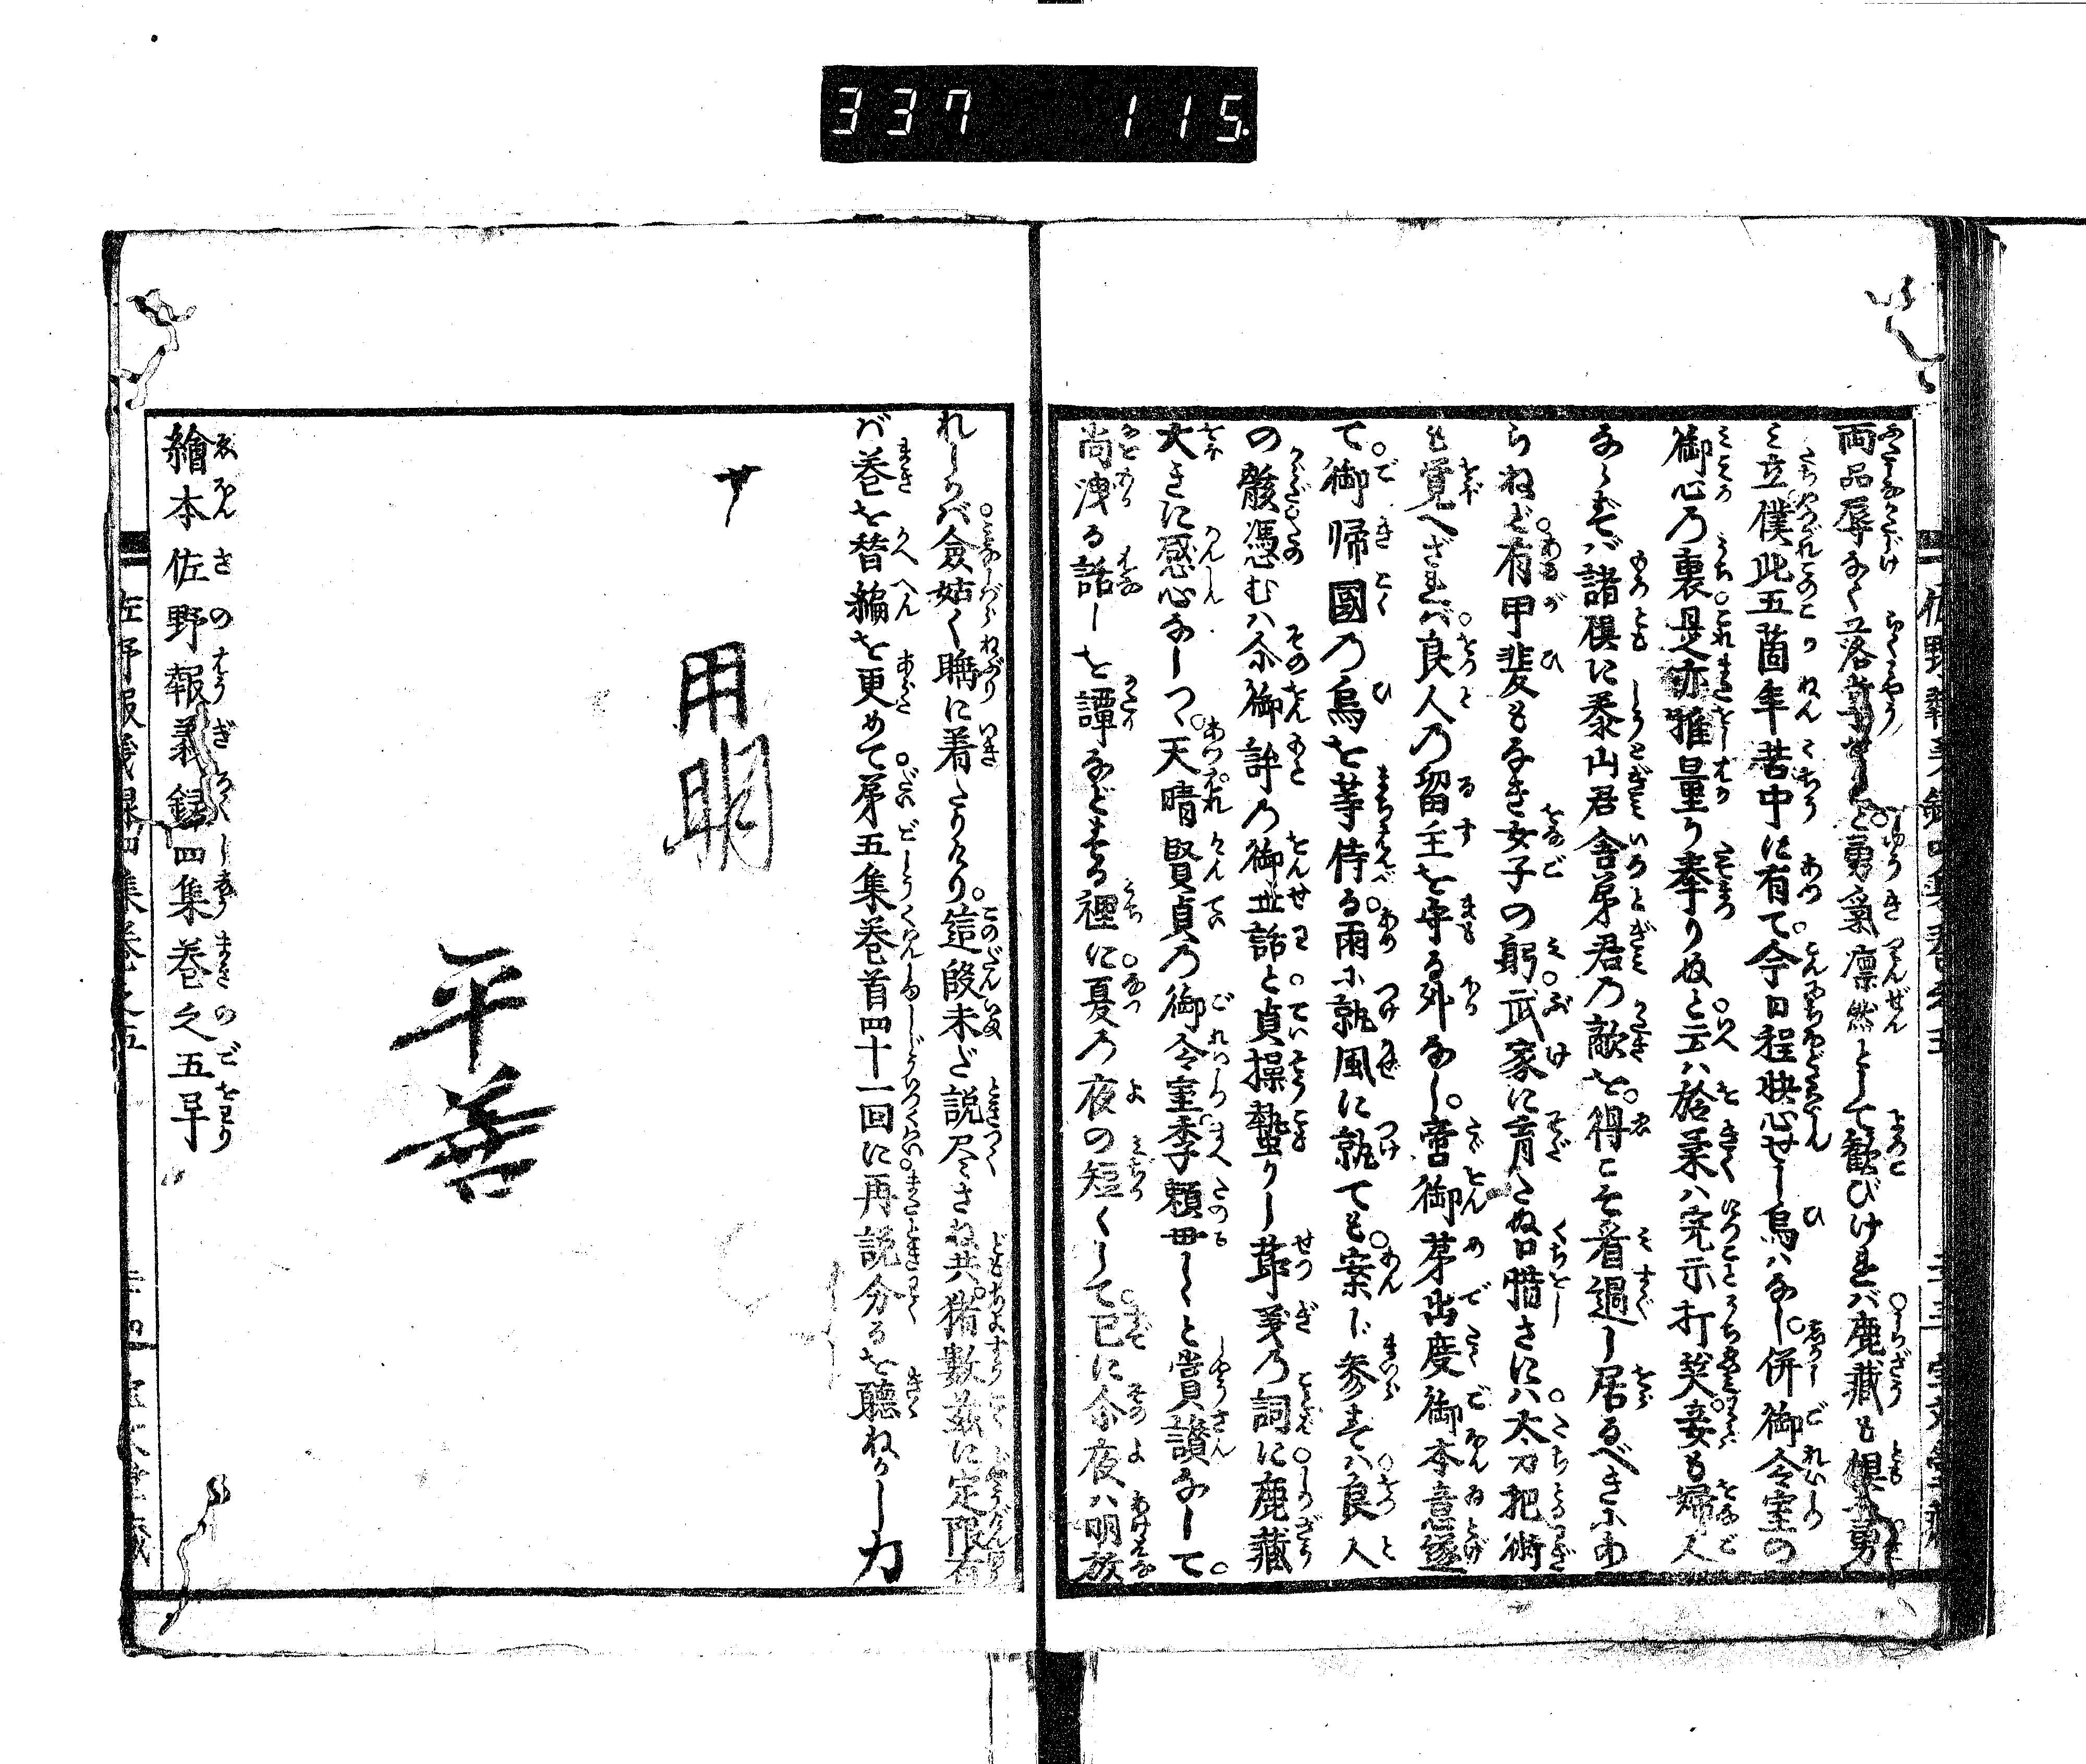 337 115
両品辱なく落掌せしと勇気凛然として歓びけれバ鹿蔵も倶に勇
み立僕此五箇年苦中に有て今日程快心せし烏ハなし。併御令室の
御心乃裏是亦推量り奉りぬと云ハ於菜ハ完示打笑妾も婦人
ならずバ諸倶に黍山君舎弟君乃敵を得こそ看過し居るべきにあ
らねど有甲斐もなき女子の躬武家に育たぬ口惜さにハ太刀把術
も覚へざれバ良人乃留主を守る外なし。啻御芽出度御本意遂
て御帰国乃烏を等侍る雨に就風に就ても案じ参すハ良人
の骸憑むハ尒御許乃御世話と貞操蟄りし節義乃詞に鹿蔵
大きに感心なしつゝ天晴賢貞乃御令室季頼母しゝと賞讃なして。
尚洩る話しを譚などする裡に夏乃夜の短くして已に尒夜ハ明放
れしかバ僉姑く睡に着たりけり。這段未だ説尽さね共。猪数茲に定限有
バ巻を替編を更めて第五集巻首四十一回に再説分るを聴ねかし
用明
平善
繪本佐野報義録四集巻之五畢
佐野報義録四集巻之五